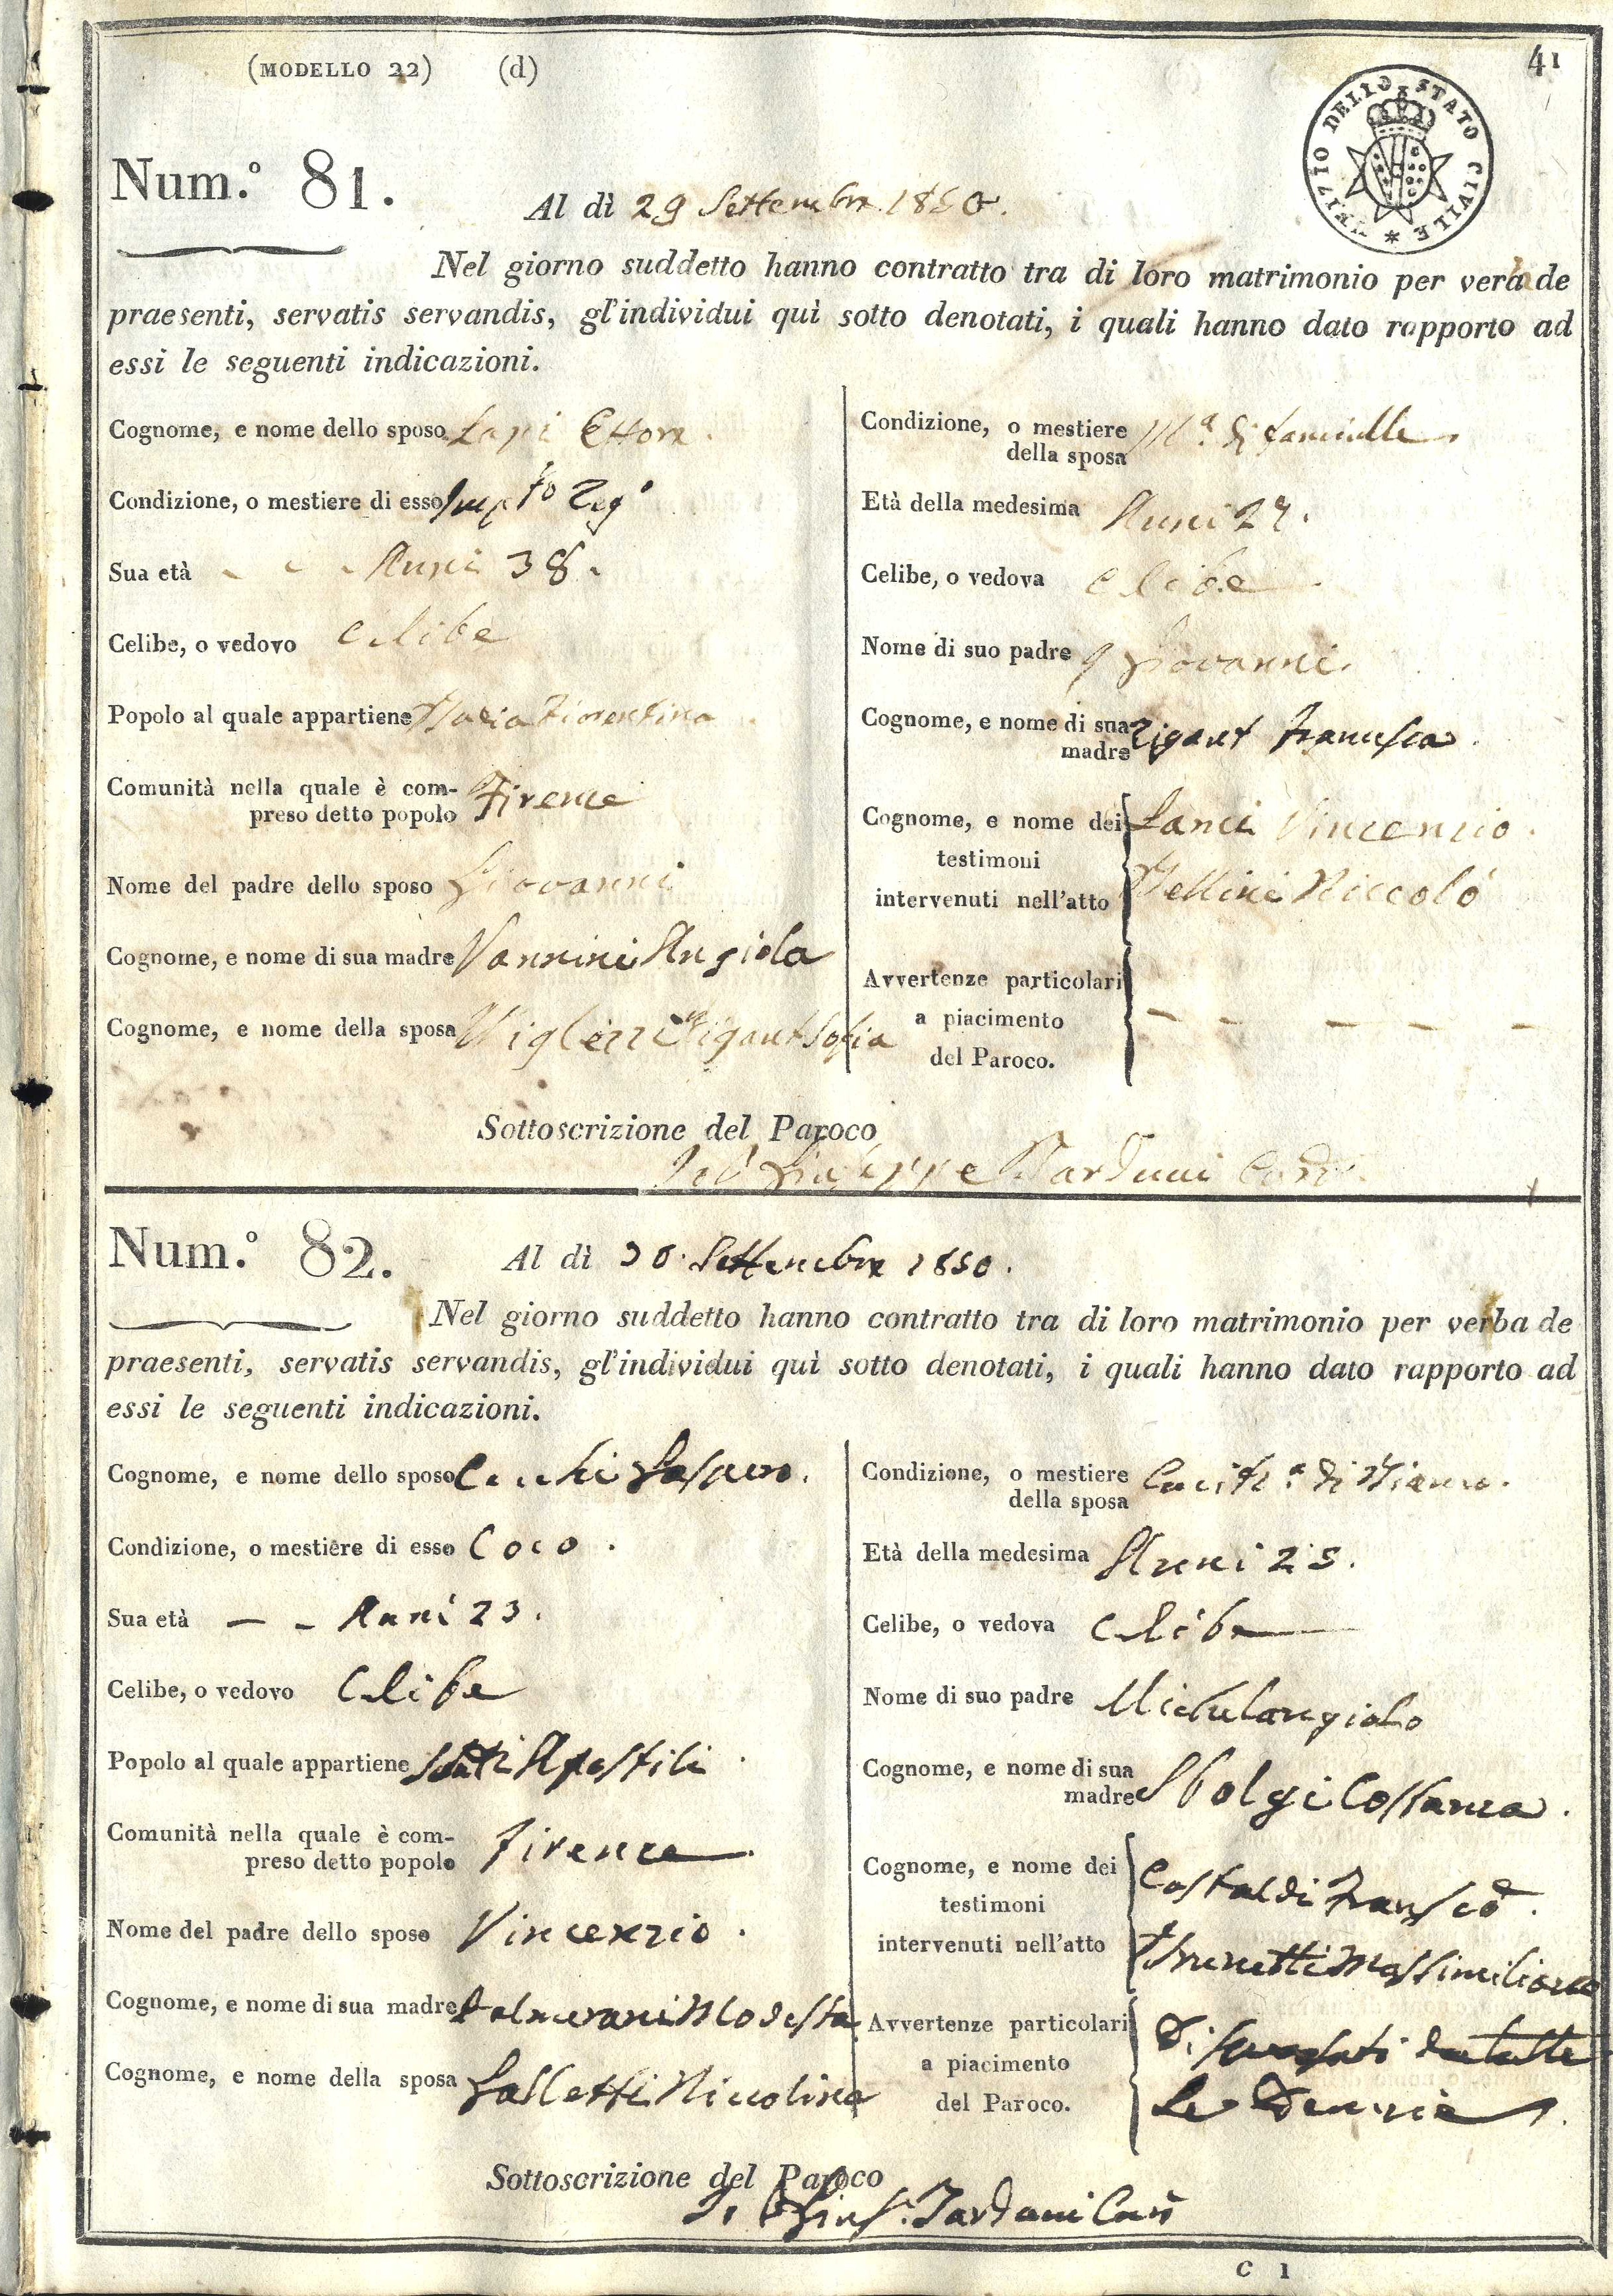 (MODELLO 22) (d)
41
UFIZIO DELLO STATO CIVILE *
Num.º 81.
Al dì 29 Settembre 1850.
Nel giorno suddetto hanno contratto tra di loro matrimonio per verba de
praesenti, servatis servandis, gl'individui quì sotto denotati, i quali hanno dato rapporto ad
essi le seguenti indicazioni.
Cognome, e nome dello sposo Lapi Ettore.
Condizione, o mestiere di esso Imp.to Reg.º
Sua età Anni 38.
Celibe, o vedovo Celibe
Popolo al quale appartiene
Comunità nella quale è com-
preso detto popolo Firenze
Nome del padre dello sposo Giovanni
Cognome, e nome di sua madre Vannini Angiola
Cognome, e nome della sposa Sofia
Condizione, o mestiere
della sposa M.a di fanciulle.
Età della medesima Anni
Celibe, o vedova Celibe
Nome di suo padre q Giovanni.
Cognome, e nome di sua
madre Rigaut Francesca.
Cognome, e nome dei
testimoni
intervenuti nell'atto
Lanci Vincenzio.
Niccolò
Avvertenze particolari
a piacimento
del Paroco.
– – – – –
Sottoscrizione del Paroco
Giuseppe Tarduci
Num.º 82.
Al dì 30. Settembre 1850.
Nel giorno suddetto hanno contratto tra di loro matrimonio per verba de
praesenti, servatis servandis, gl'individui quì sotto denotati, i quali hanno dato rapporto ad
essi le seguenti indicazioni.
Cognome, e nome dello sposo Cecchi Gaspero.
Condizione, o mestiere di esso Coco.
Sua età – – Anni 23.
Celibe, o vedovo Celibe
Popolo al quale appartiene Santi Apostili
Comunità nella quale è com-
preso detto popolo Firenze.
Nome del padre dello sposo Vincenzio.
Cognome, e nome di sua madre Modesta
Cognome, e nome della sposa Galletti Niccolina
Condizione, o mestiere
della sposa Cucit.a di Bianco.
Età della medesima Anni 25.
Celibe, o vedova Celibe
Nome di suo padre Michelangiolo
Cognome, e nome di sua
madre Sbolgi Costanza.
Cognome, e nome dei
testimoni
intervenuti nell'atto
Castaldi Fransco.
Brunetti Massimiliano
Avvertenze particolari
a piacimento
del Paroco.
Dispensati da tutte
Le Denunzie.
Sottoscrizione del Paroco
C 1